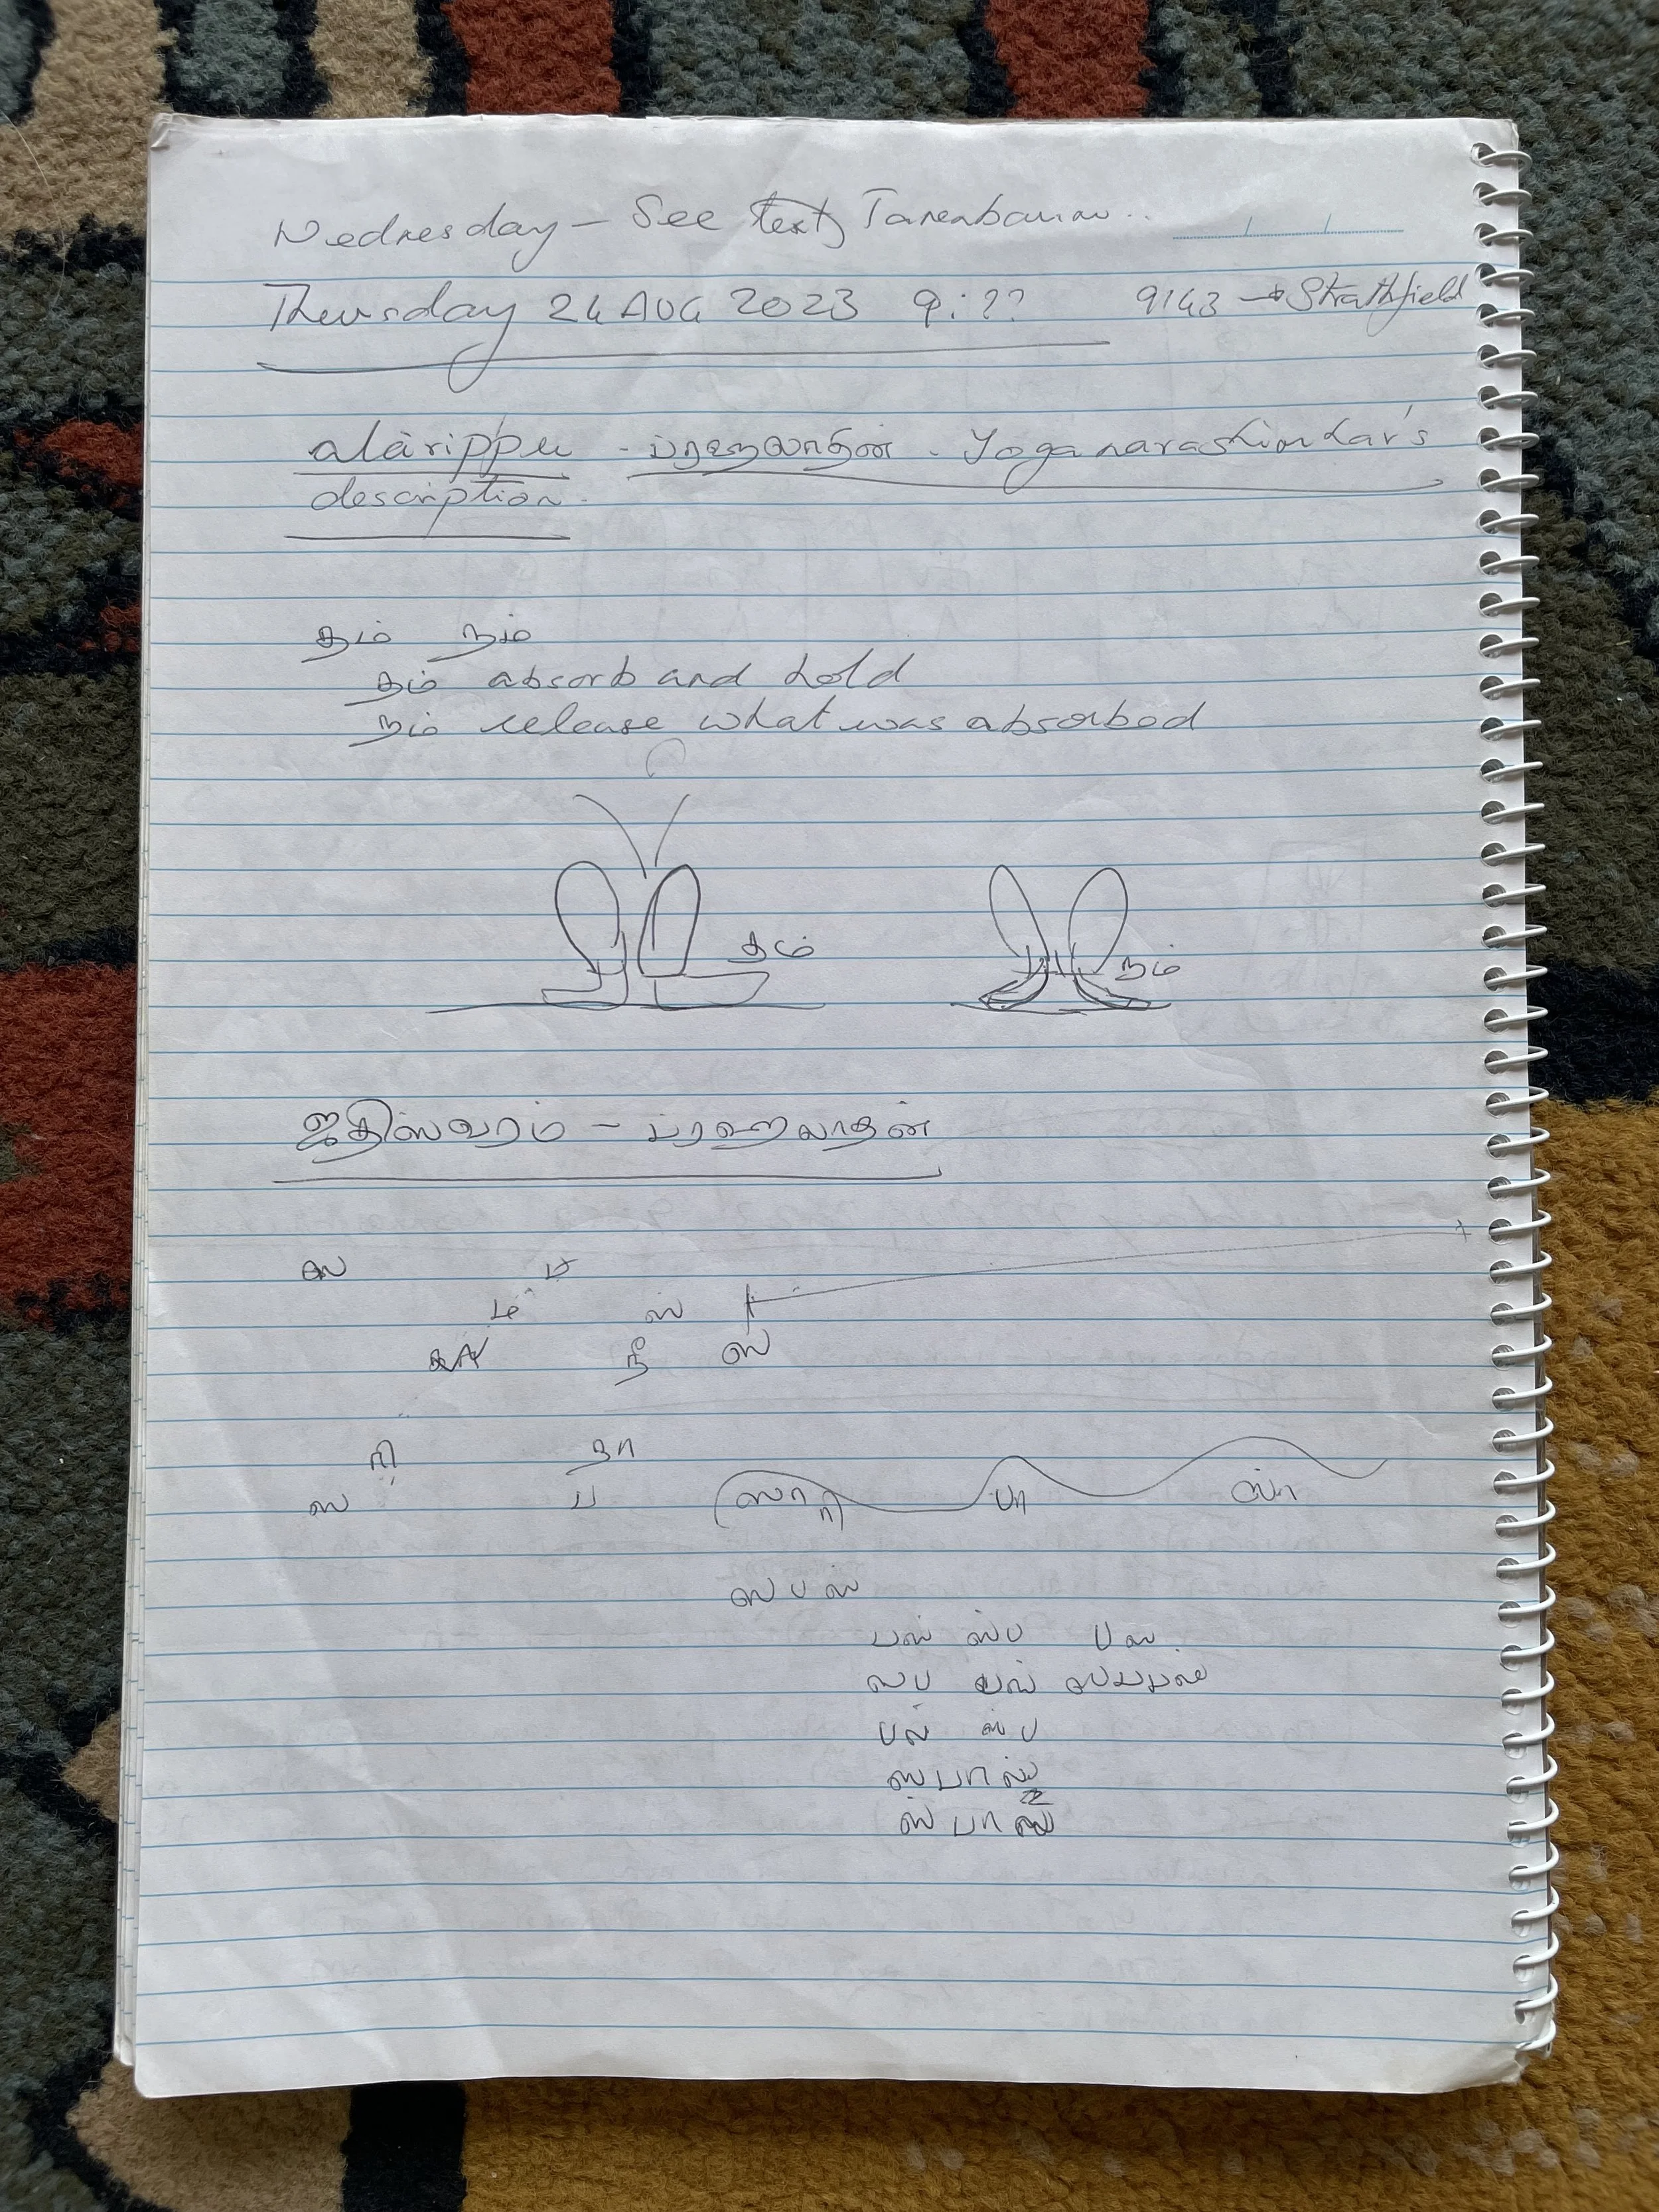 Wednesday – See text Tanenbaum..
Thursday 24 AUG 2023 9:?? 9143 → Strathfield
alarippu - ப்ரஹலாதன். Yoganarashimhar's
description.
தம் நம்
தம் absorb and hold
நம் release what was absorbed
தம் நம்
ஜதிஸ்வரம் – ப்ரஹலாதன்
ஸ ப
ம ஸ்
நீ ஸ்
ரி தா
ஸ ப ஸா ரி பா ஸ் ா
ஸ ப ஸ்
பஸ் ஸ்ப ப ஸ.
ஸப பஸ்
பஸ் ஸ்ப
ஸ்பா
ஸ் பா